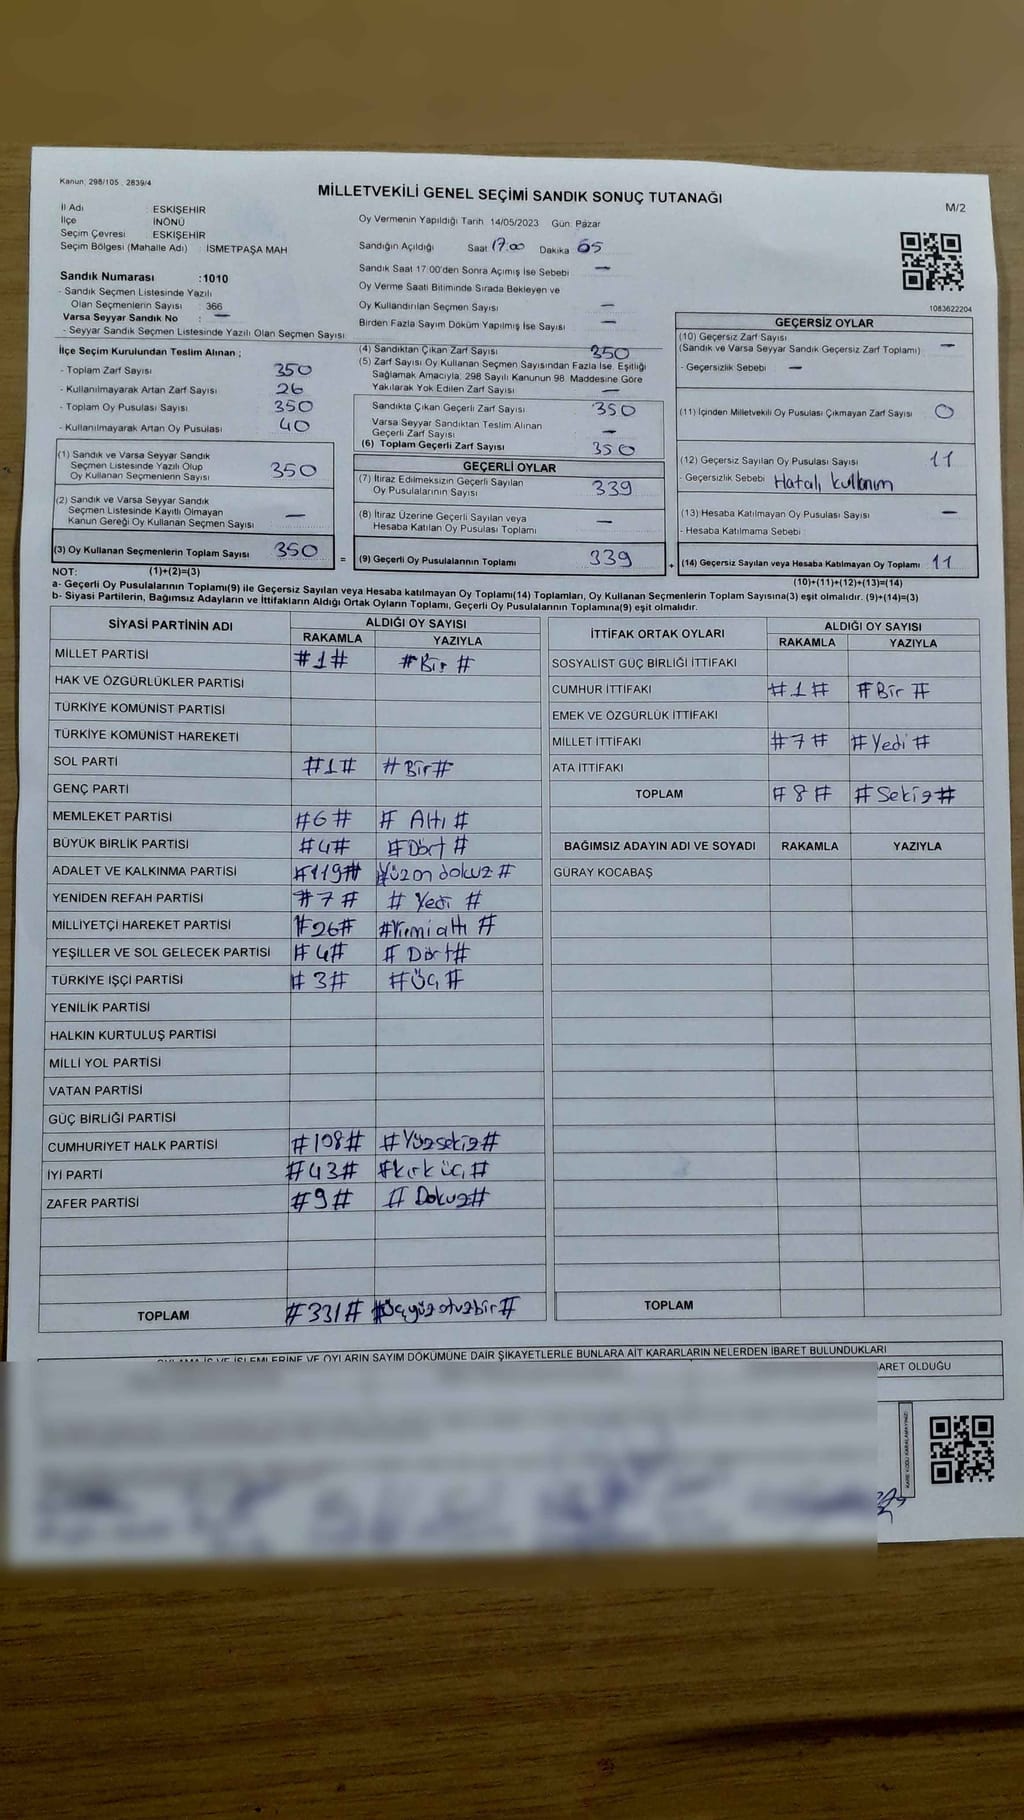 Kanun; 298/105 , 2839/4
MİLLETVEKİLİ GENEL SEÇİMİ SANDIK SONUÇ TUTANAĞI
M/2
İl Adı : ESKİŞEHİR
İlçe : İNÖNÜ
Seçim Çevresi : ESKİŞEHİR
Seçim Bölgesi (Mahalle Adı) : İSMETPAŞA MAH
Oy Vermenin Yapıldığı Tarih 14/05/2023 Gün: Pazar
Sandığın Açıldığı Saat 17:00 Dakika 05
Sandık Saat 17:00'den Sonra Açımış İse Sebebi —
Oy Verme Saati Bitiminde Sırada Bekleyen ve
Oy Kullandırılan Seçmen Sayısı —
Birden Fazla Sayım Döküm Yapılmış İse Sayısı —
1083622204
Sandık Numarası :1010
- Sandık Seçmen Listesinde Yazılı
Olan Seçmenlerin Sayısı : 366
Varsa Seyyar Sandık No : —
- Seyyar Sandık Seçmen Listesinde Yazılı Olan Seçmen Sayısı
İlçe Seçim Kurulundan Teslim Alınan ;
- Toplam Zarf Sayısı 350
- Kullanılmayarak Artan Zarf Sayısı 26
- Toplam Oy Pusulası Sayısı 350
- Kullanılmayarak Artan Oy Pusulası 40
(1) Sandık ve Varsa Seyyar Sandık
Seçmen Listesinde Yazılı Olup
Oy Kullanan Seçmenlerin Sayısı 350
(2) Sandık ve Varsa Seyyar Sandık
Seçmen Listesinde Kayıtlı Olmayan
Kanun Gereği Oy Kullanan Seçmen Sayısı —
(3) Oy Kullanan Seçmenlerin Toplam Sayısı 350
(4) Sandıktan Çıkan Zarf Sayısı 350
(5) Zarf Sayısı Oy Kullanan Seçmen Sayısından Fazla İse, Eşitliği
Sağlamak Amacıyla, 298 Sayılı Kanunun 98. Maddesine Göre
Yakılarak Yok Edilen Zarf Sayısı —
Sandıkta Çıkan Geçerli Zarf Sayısı 350
Varsa Seyyar Sandıktan Teslim Alınan
Geçerli Zarf Sayısı —
(6) Toplam Geçerli Zarf Sayısı 350
GEÇERLİ OYLAR
(7) İtiraz Edilmeksizin Geçerli Sayılan
Oy Pusulalarının Sayısı 339
(8) İtiraz Üzerine Geçerli Sayılan veya
Hesaba Katılan Oy Pusulası Toplamı —
= (9) Geçerli Oy Pusulalarının Toplamı 339
GEÇERSİZ OYLAR
(10) Geçersiz Zarf Sayısı
(Sandık ve Varsa Seyyar Sandık Geçersiz Zarf Toplamı) —
- Geçersizlik Sebebi : —
(11) İçinden Milletvekili Oy Pusulası Çıkmayan Zarf Sayısı 0
(12) Geçersiz Sayılan Oy Pusulası Sayısı 11
- Geçersizlik Sebebi : Hatalı kullanım
(13) Hesaba Katılmayan Oy Pusulası Sayısı —
- Hesaba Katılmama Sebebi :
+ (14) Geçersiz Sayılan veya Hesaba Katılmayan Oy Toplamı 11
NOT: (1)+(2)=(3)
(10)+(11)+(12)+(13)=(14)
a- Geçerli Oy Pusulalarının Toplamı(9) ile Geçersiz Sayılan veya Hesaba katılmayan Oy Toplamı(14) Toplamları, Oy Kullanan Seçmenlerin Toplam Sayısına(3) eşit olmalıdır. (9)+(14)=(3)
b- Siyasi Partilerin, Bağımsız Adayların ve İttifakların Aldığı Ortak Oyların Toplamı, Geçerli Oy Pusulalarının Toplamına(9) eşit olmalıdır.
SİYASİ PARTİNİN ADI ALDIĞI OY SAYISI
RAKAMLA YAZIYLA
MİLLET PARTİSİ #1# #Bir#
HAK VE ÖZGÜRLÜKLER PARTİSİ
TÜRKİYE KOMÜNİST PARTİSİ
TÜRKİYE KOMÜNİST HAREKETİ
SOL PARTİ #1# #Bir#
GENÇ PARTİ
MEMLEKET PARTİSİ #6# # Altı #
BÜYÜK BİRLİK PARTİSİ #4# #Dört #
ADALET VE KALKINMA PARTİSİ #119# #Yüzon dokuz #
YENİDEN REFAH PARTİSİ #7# # Yedi #
MİLLİYETÇİ HAREKET PARTİSİ #26# #Yirmi altı #
YEŞİLLER VE SOL GELECEK PARTİSİ #4# # Dört#
TÜRKİYE İŞÇİ PARTİSİ #3# #Üç#
YENİLİK PARTİSİ
HALKIN KURTULUŞ PARTİSİ
MİLLİ YOL PARTİSİ
VATAN PARTİSİ
GÜÇ BİRLİĞİ PARTİSİ
CUMHURİYET HALK PARTİSİ #108# #Yüzsekiz#
İYİ PARTİ #43# #kırk üç#
ZAFER PARTİSİ #9# # Dokuz#
TOPLAM #331# #Üçyüz otuzbir#
İTTİFAK ORTAK OYLARI ALDIĞI OY SAYISI
RAKAMLA YAZIYLA
SOSYALİST GÜÇ BİRLİĞİ İTTİFAKI
CUMHUR İTTİFAKI #1# #Bir #
EMEK VE ÖZGÜRLÜK İTTİFAKI
MİLLET İTTİFAKI #7# #Yedi #
ATA İTTİFAKI
TOPLAM #8# #Sekiz#
BAĞIMSIZ ADAYIN ADI VE SOYADI RAKAMLA YAZIYLA
GÜRAY KOCABAŞ
TOPLAM
İŞLEMLERİNE VE OYLARIN SAYIM DÖKÜMÜNE DAİR ŞİKAYETLERLE BUNLARA AİT KARARLARIN NELERDEN İBARET BULUNDUKLARI
OLDUĞU
KARE KODU KARALAMAYINIZ!